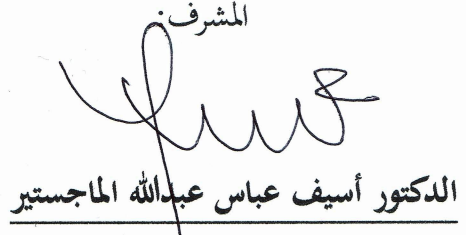 المشرف:
الدكتور أسيف عباس عبدالله الماجستير